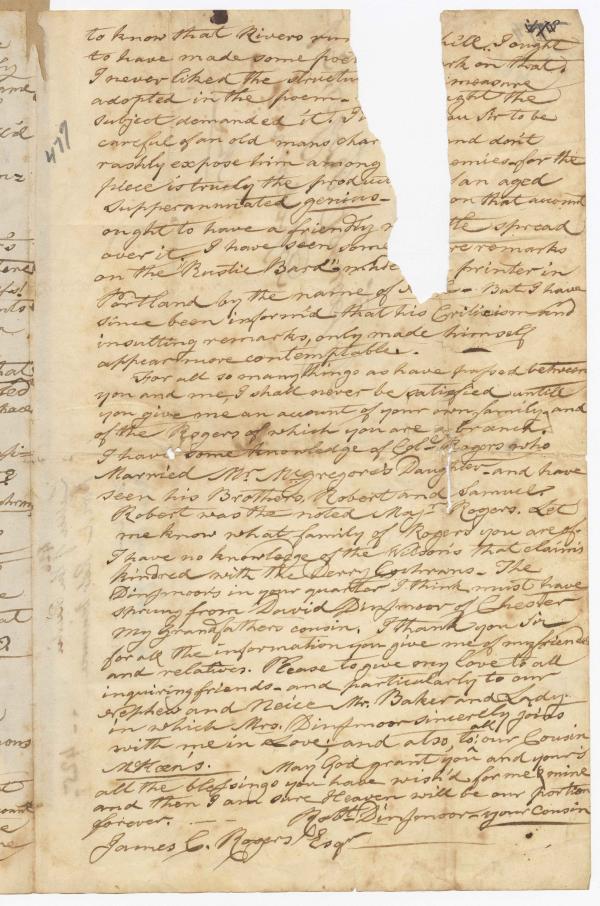 to know that Rivers run hill. I ought
to have made some poe rk on that.
I never liked the structu measure
adopted in the poem - ught the
subject demanded it. I ou Sr to be
careful of an old mans char and don't
rashly expose him among emies - for the
piece is truely the produc an aged
supperannuated genius - on that account
ought to have a friendly tle spread
over it. I have seen some re remarks
on the "Rustic Bard" printer in
Portland by the name of - But I have
since been inform'd that his Criticism and
insulting remarks, only made himself
appear more contemptable. -
For all so many things as have passed between
you and me, I shall never be satisfied untill
you give me an account of your own family, and
of the Rogers of which you are a branch.
I have some knowledge of Col. Rogers who
Married Mr. McGregore's Daughter - and have
seen his Brothers, Robert and Samuel
Robert was the noted Majr. Rogers. Let
me know what family of Rogers you are of.
I have no knowledge of the Wilsons that claims
kindred with the Derry Cochrans - The
Dinsmoors in your quarter I think must have
sprung from David Dinsmoor of Chester
my Grandfathers cousin. I thank you Sir
for all the information you give me of my friends
and relatives. Please to give my love to all
inquiring friends - and particularly to our
Nephew and Neice Mr. Baker and Lady.
in which Mrs. Dinsmoor sincerly joins
with me in Love, and also, to all our Cousin
McKeens. May God grant you and yours
all the blessings you have wish'd for me & mine
and then I am sure Heaven will be our portion
forever. - - Robt. Dinsmoor - your Cousin
James C. Rogers Esqr
477